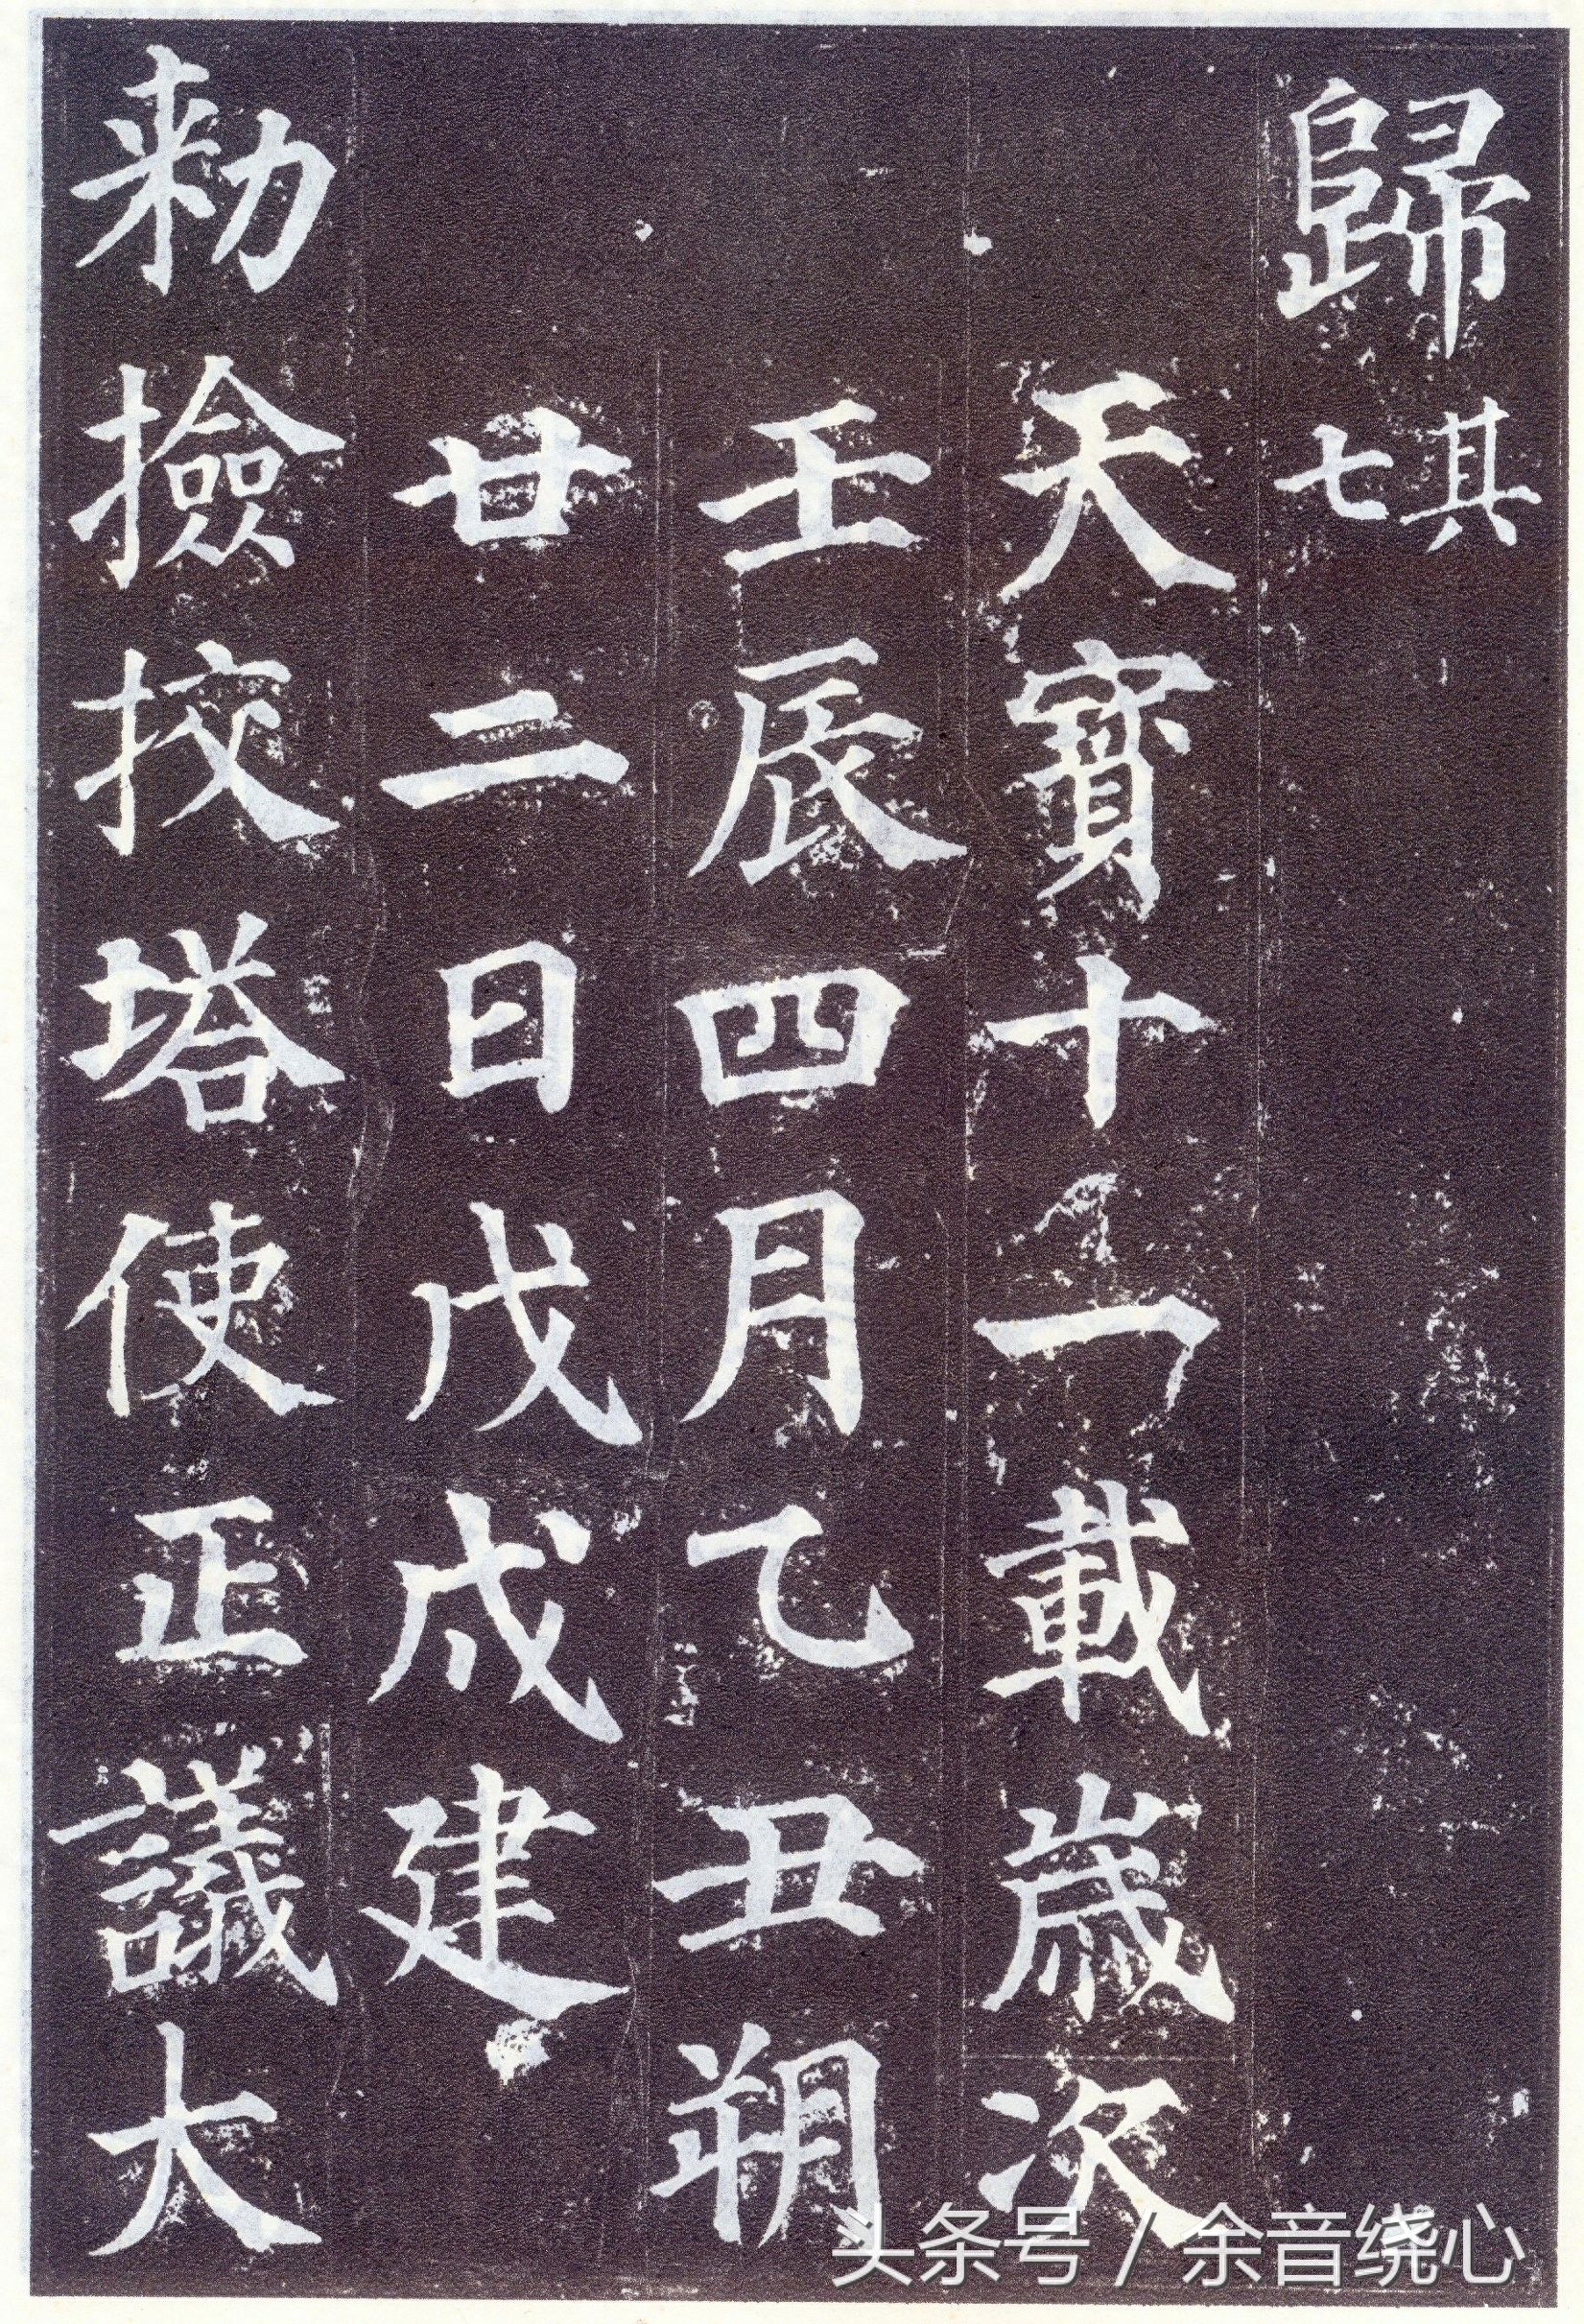 歸其七
天寶十一載歲次
壬辰四月乙丑朔
廿二日戊戌建
勑撿挍塔使正議大
头条号 / 余音绕心